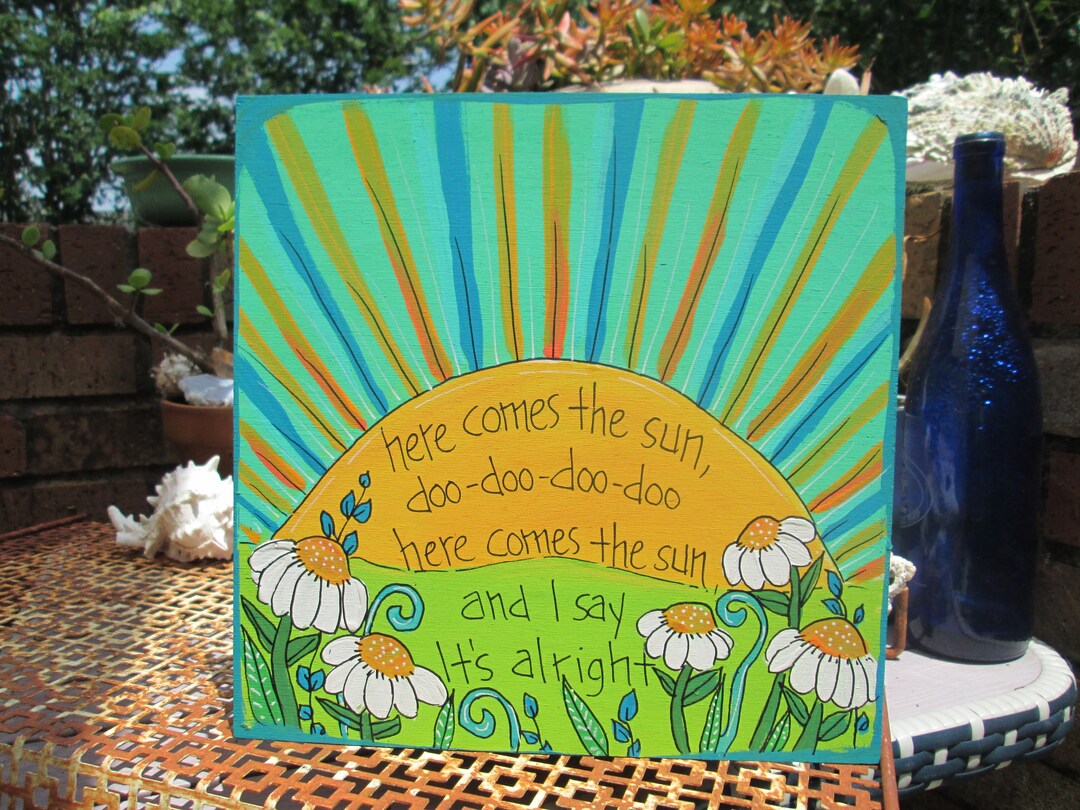 here comes the sun,
doo-doo-doo-doo
here comes the sun,
and I say
It's alright